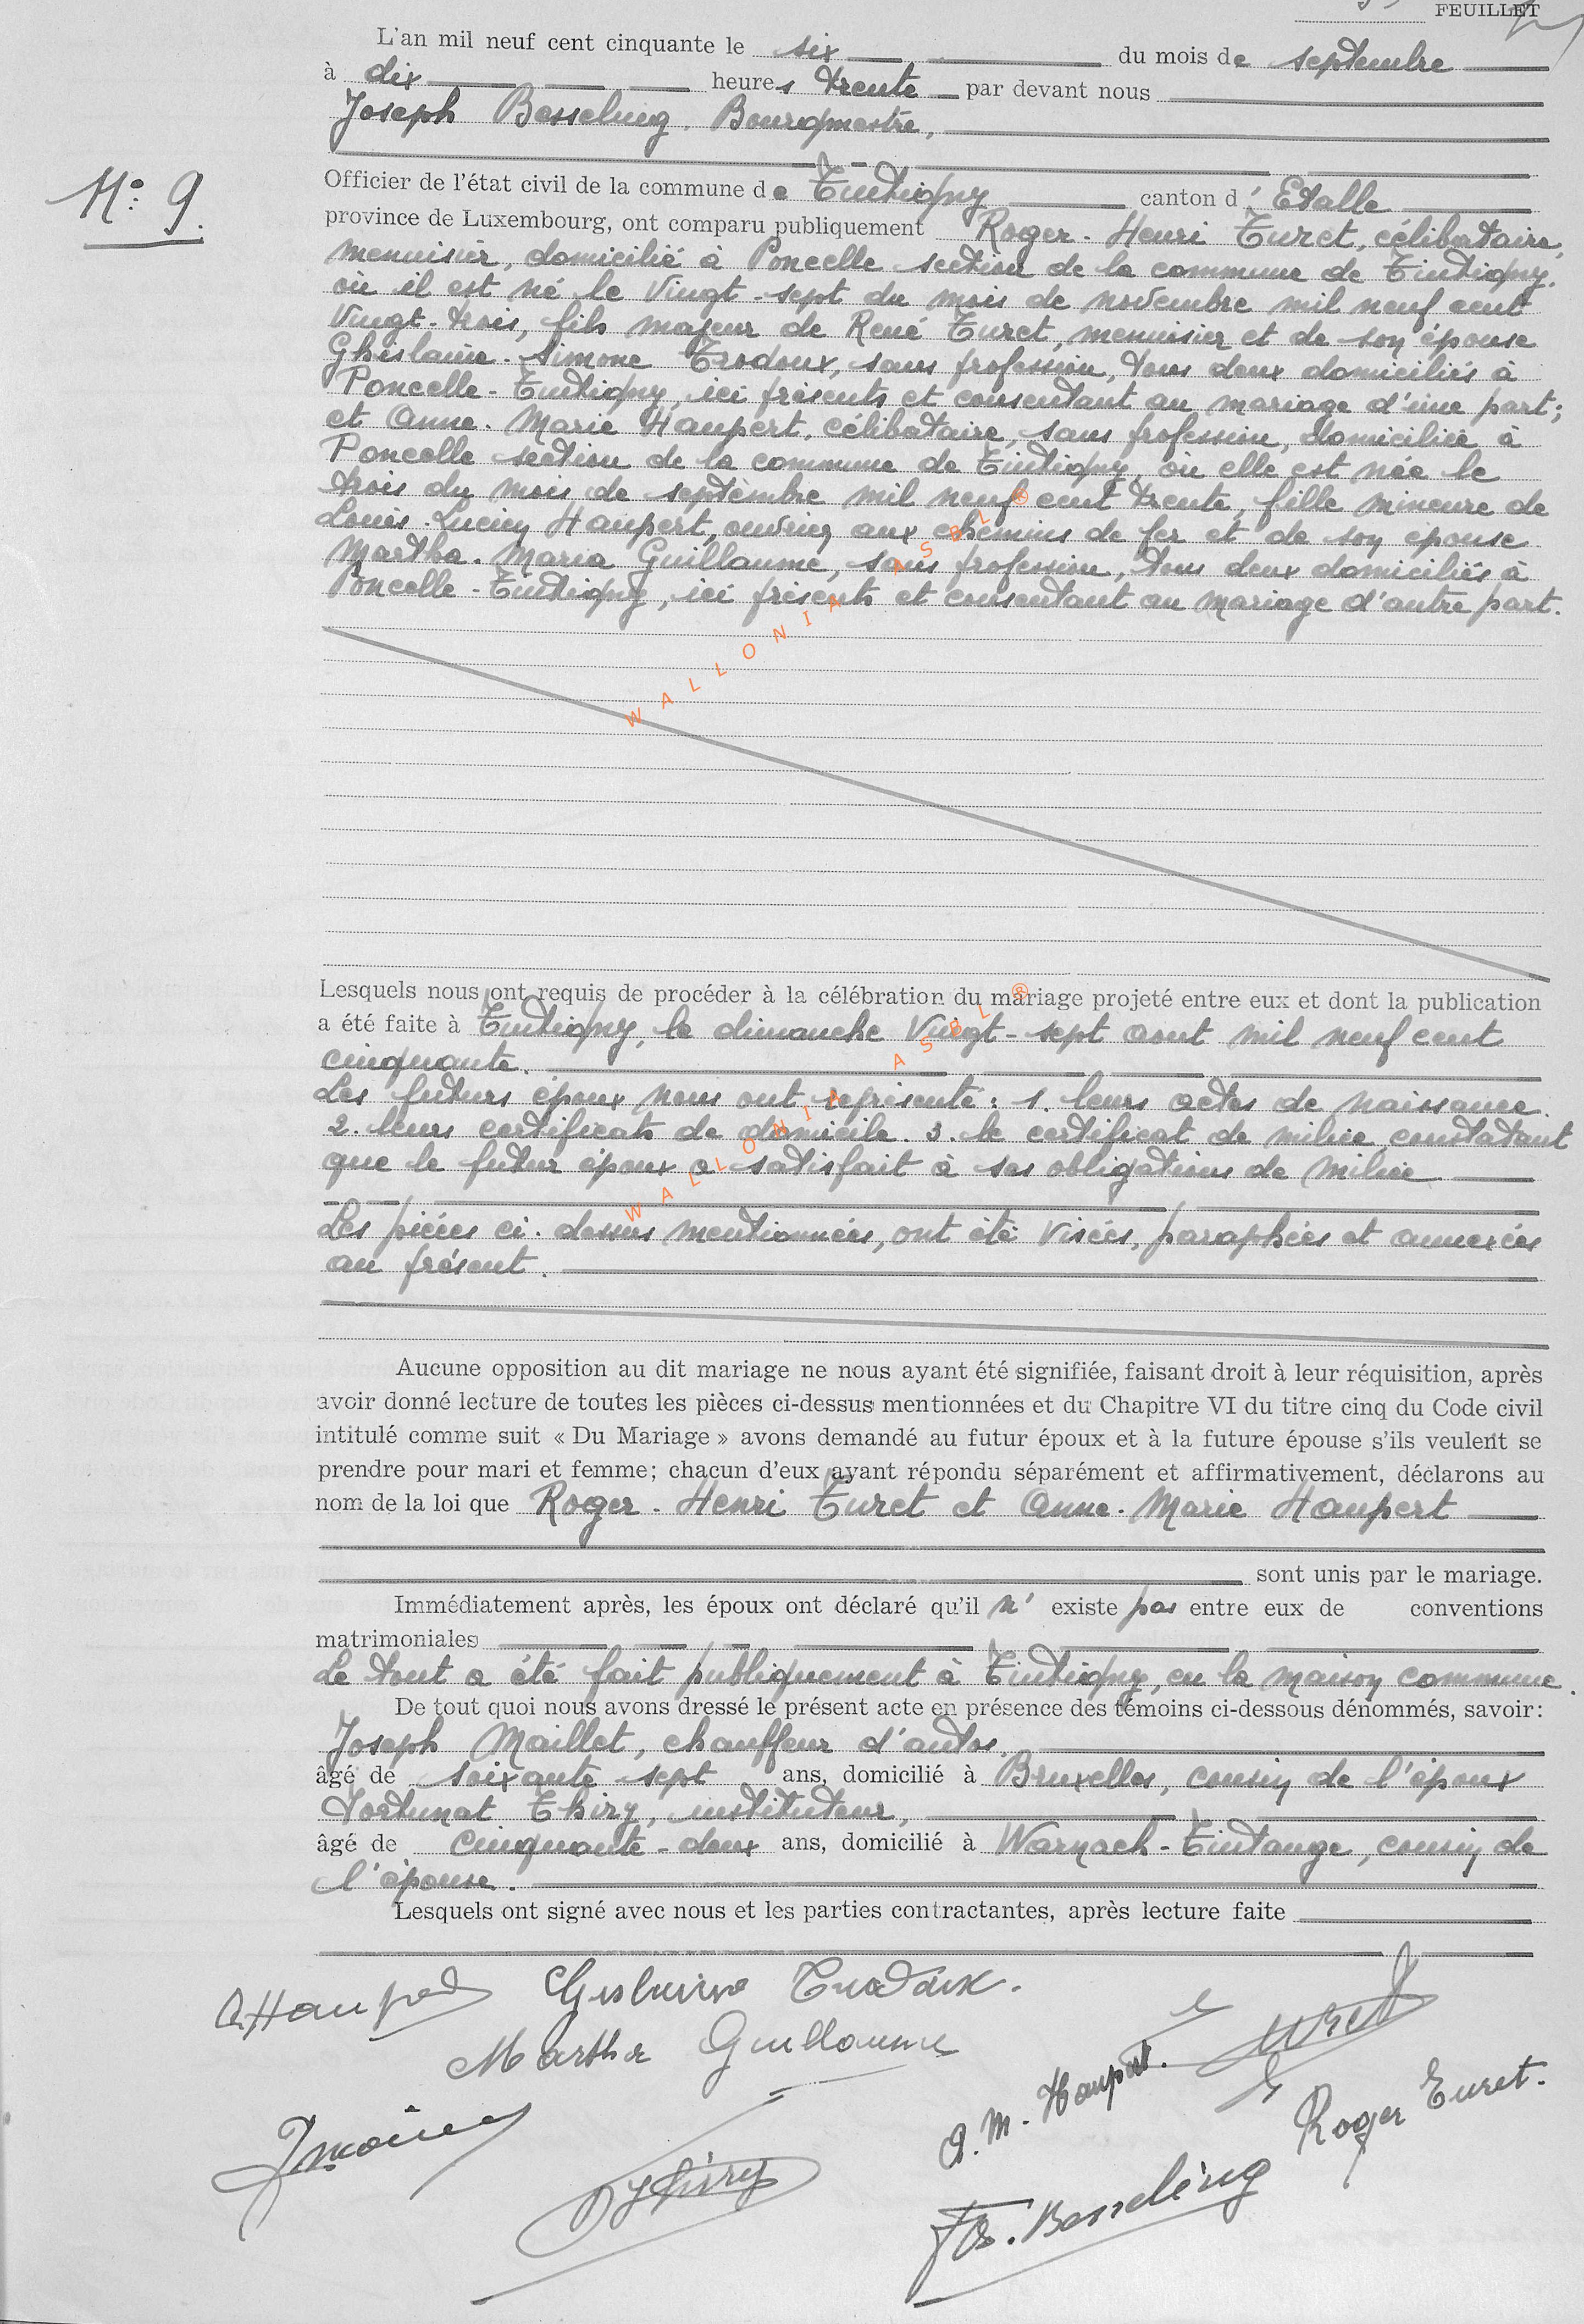 FEUILLET
L'an mil neuf cent cinquante le six du mois de septembre
à dix heures trente par devant nous
Joseph Besseling, Bourgmestre,
N° 9.
Officier de l'état civil de la commune de Tintigny canton d' Etalle
province de Luxembourg, ont comparu publiquement Roger-Henri Turet, célibataire,
menuisier, domicilié à Poncelle section de la commune de Tintigny.
où il est né le vingt-sept du mois de novembre mil neuf cent
vingt-trois, fils majeur de René Turet, menuisier et de son épouse
Ghislaine-Simone Trodoux, sans profession, tous deux domiciliés à
Poncelle-Tintigny, ici présents et consentant au mariage d'une part;
et Anne-Marie Haupert, célibataire, sans profession, domiciliée à
Poncelle section de la commune de Tintigny, où elle est née le
trois du mois de septembre mil neuf cent trente, fille mineure de
Louis-Lucien Haupert, ouvrier aux chemins de fer et de son épouse
Martha-Maria Guillaume, sans profession, tous deux domiciliés à
Poncelle-Tintigny, ici présents et consentant au mariage d'autre part.
WALLONIA ASBL ®
Lesquels nous ont requis de procéder à la célébration du mariage projeté entre eux et dont la publication
a été faite à Tintigny, le dimanche vingt-sept aout mil neuf cent
cinquante.
Les futurs époux nous ont représenté: 1. leurs actes de naissance.
2. leurs certificats de domicile. 3. le certificat de milice constatant
que le futur époux a satisfait à ses obligations de milice
WALLONIA ASBL ®
Les pièces ci-dessus mentionnées, ont été visées, paraphées et annexées
au présent.
Aucune opposition au dit mariage ne nous ayant été signifiée, faisant droit à leur réquisition, après
avoir donné lecture de toutes les pièces ci-dessus mentionnées et du Chapitre VI du titre cinq du Code civil
intitulé comme suit « Du Mariage » avons demandé au futur époux et à la future épouse s'ils veulent se
prendre pour mari et femme; chacun d'eux ayant répondu séparément et affirmativement, déclarons au
nom de la loi que Roger-Henri Turet et Anne-Marie Haupert
sont unis par le mariage.
Immédiatement après, les époux ont déclaré qu'il n' existe pas entre eux de conventions
matrimoniales
Le tout a été fait publiquement à Tintigny, en la maison commune.
De tout quoi nous avons dressé le présent acte en présence des témoins ci-dessous dénommés, savoir:
Joseph Maillet, chauffeur d'autos,
âgé de soixante sept ans, domicilié à Bruxelles, cousin de l'époux
Fortunat Thiry, instituteur,
âgé de cinquante-deux ans, domicilié à Warnach-Tintange, cousin de
l'épouse.
Lesquels ont signé avec nous et les parties contractantes, après lecture faite
Ghislaine Trodoux.
Martha Guillaume
Turet
A. M. Haupert.
Roger Turet.
Thiry
Jos. Besseling